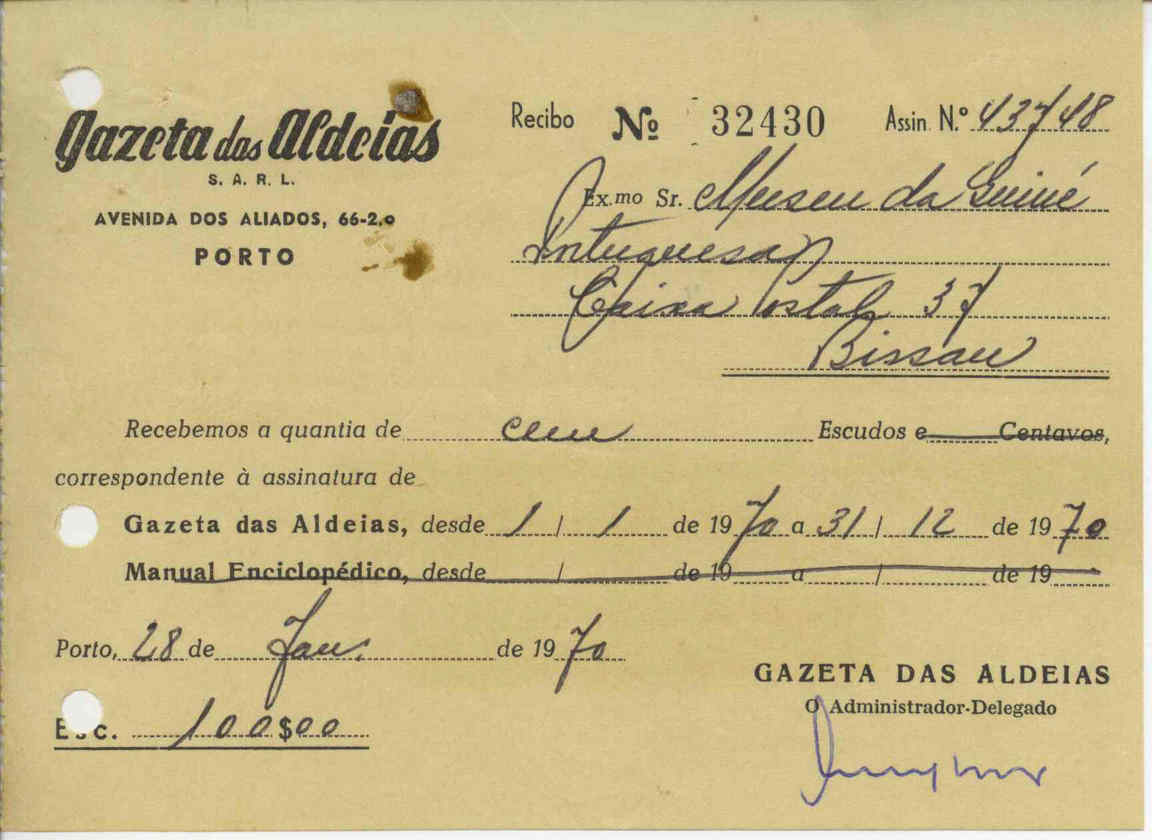 Gazeta das Aldeias
S. A. R. L.
AVENIDA DOS ALIADOS, 66-2.o
PORTO
Recibo No 32430 Assin. N.º 43748
Ex.mo Sr. Museu da Guiné
Portuguesa
Caixa Postal 37
Bissau
Recebemos a quantia de cem Escudos e Centavos,
correspondente à assinatura de
Gazeta das Aldeias, desde 1 / 1 de 1970 a 31 / 12 de 1970
Manual Enciclopédico, desde / de 19 a / de 19
Porto, 28 de Jan. de 1970
GAZETA DAS ALDEIAS
O Administrador-Delegado
Esc. 100$00